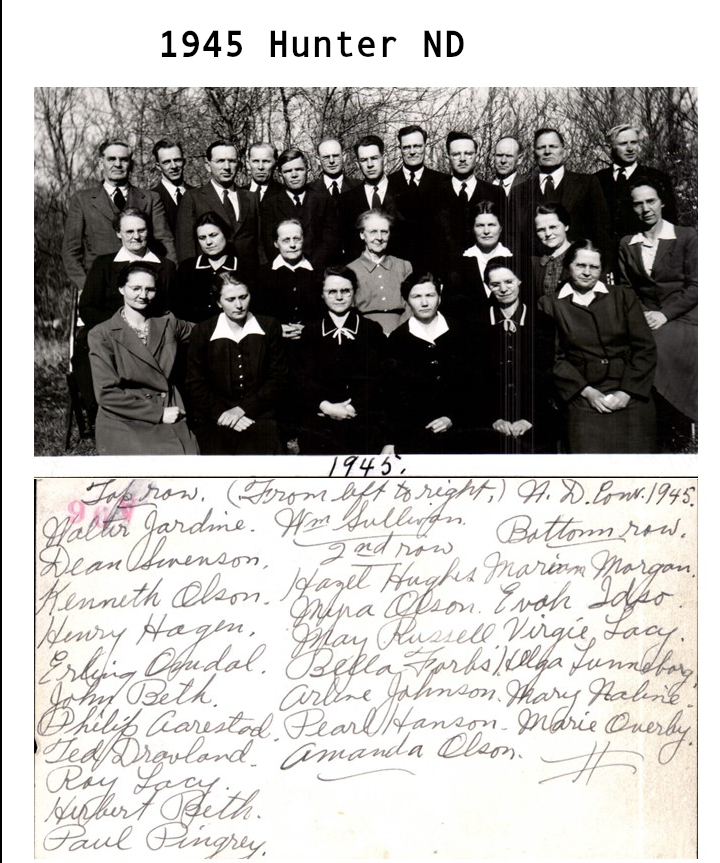 1945 Hunter ND
1945.
Top row. (From left to right.) N. D. Conv. 1945.
Walter Jardine. Wm Sullivan. Bottom row.
Dean Swenson. 2nd row Mariam Morgan.
Kenneth Olson. Hazel Hughes Evah Idso.
Henry Hagen. Myra Olson. Virgie Lacy.
Erling Omdal. May Russell Olga Sunneborg.
John Beth. Bella Forbs Mary
Philip Aarestad. Arline Johnson. Marie Overby.
Ted Dravland. Pearl Hanson.
Roy Lacy. Amanda Olson.
Herbert Beth.
Paul Pingrey.